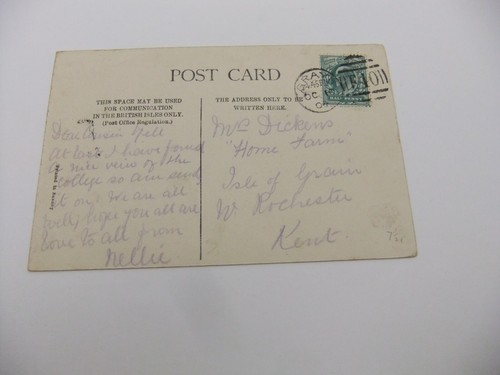 POST CARD
THIS SPACE MAY BE USED
FOR COMMUNICATION
IN THE BRITISH ISLES ONLY.
(Post Office Regulation.)
THE ADDRESS ONLY TO BE
WRITTEN HERE.
Dear Cousin Nell
At last I have found
a nice view of the
College so am send
it on, We are all
well, hope you all are
love to all from
Nellie
Dickens
"Home Farm"
Isle of Grain
Nr Rochester
Kent.
HALF PENNY